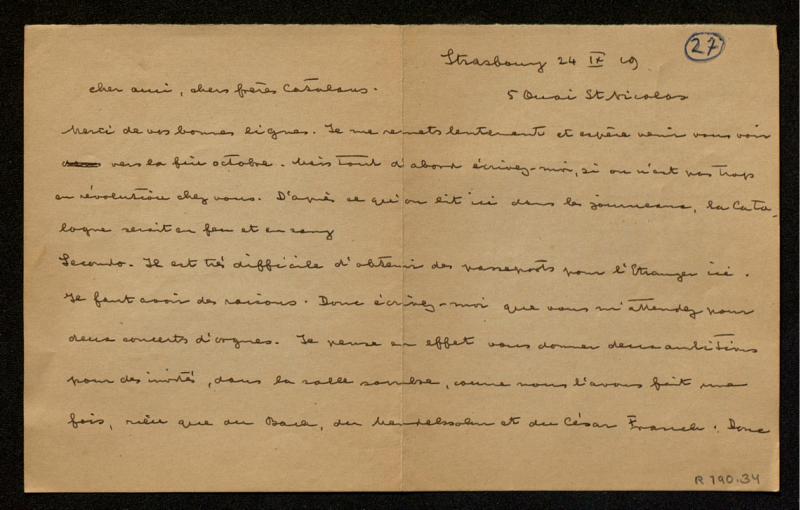 27
Strasbourg 24 IX 19
cher ami, chers frères Catalans.
5 Quai St Nicolas
Merci de vos bonnes lignes. Je me remets lentement et espère venir vous voir
vers la fin octobre. Mais tout d'abord écrivez-moi, si on n'est pas trop
en révolution chez vous. D'après ce qu'on lit ici dans les journeaux, la Cata-
logne serait en feu et en sang
Secondo. Il est très difficile d'obtenir des passeports pour l'Etranger ici.
Il faut avoir des raisons. Donc écrivez-moi que vous m'attendez pour
deux concerts d'orgues. Je pense en effet vous donner deux auditions
pour des invités, dans la salle sombre, comme nous l'avons fait une
fois, rien que du Bach, du Mendelssohn et du César Franck. Donc
R 190.34